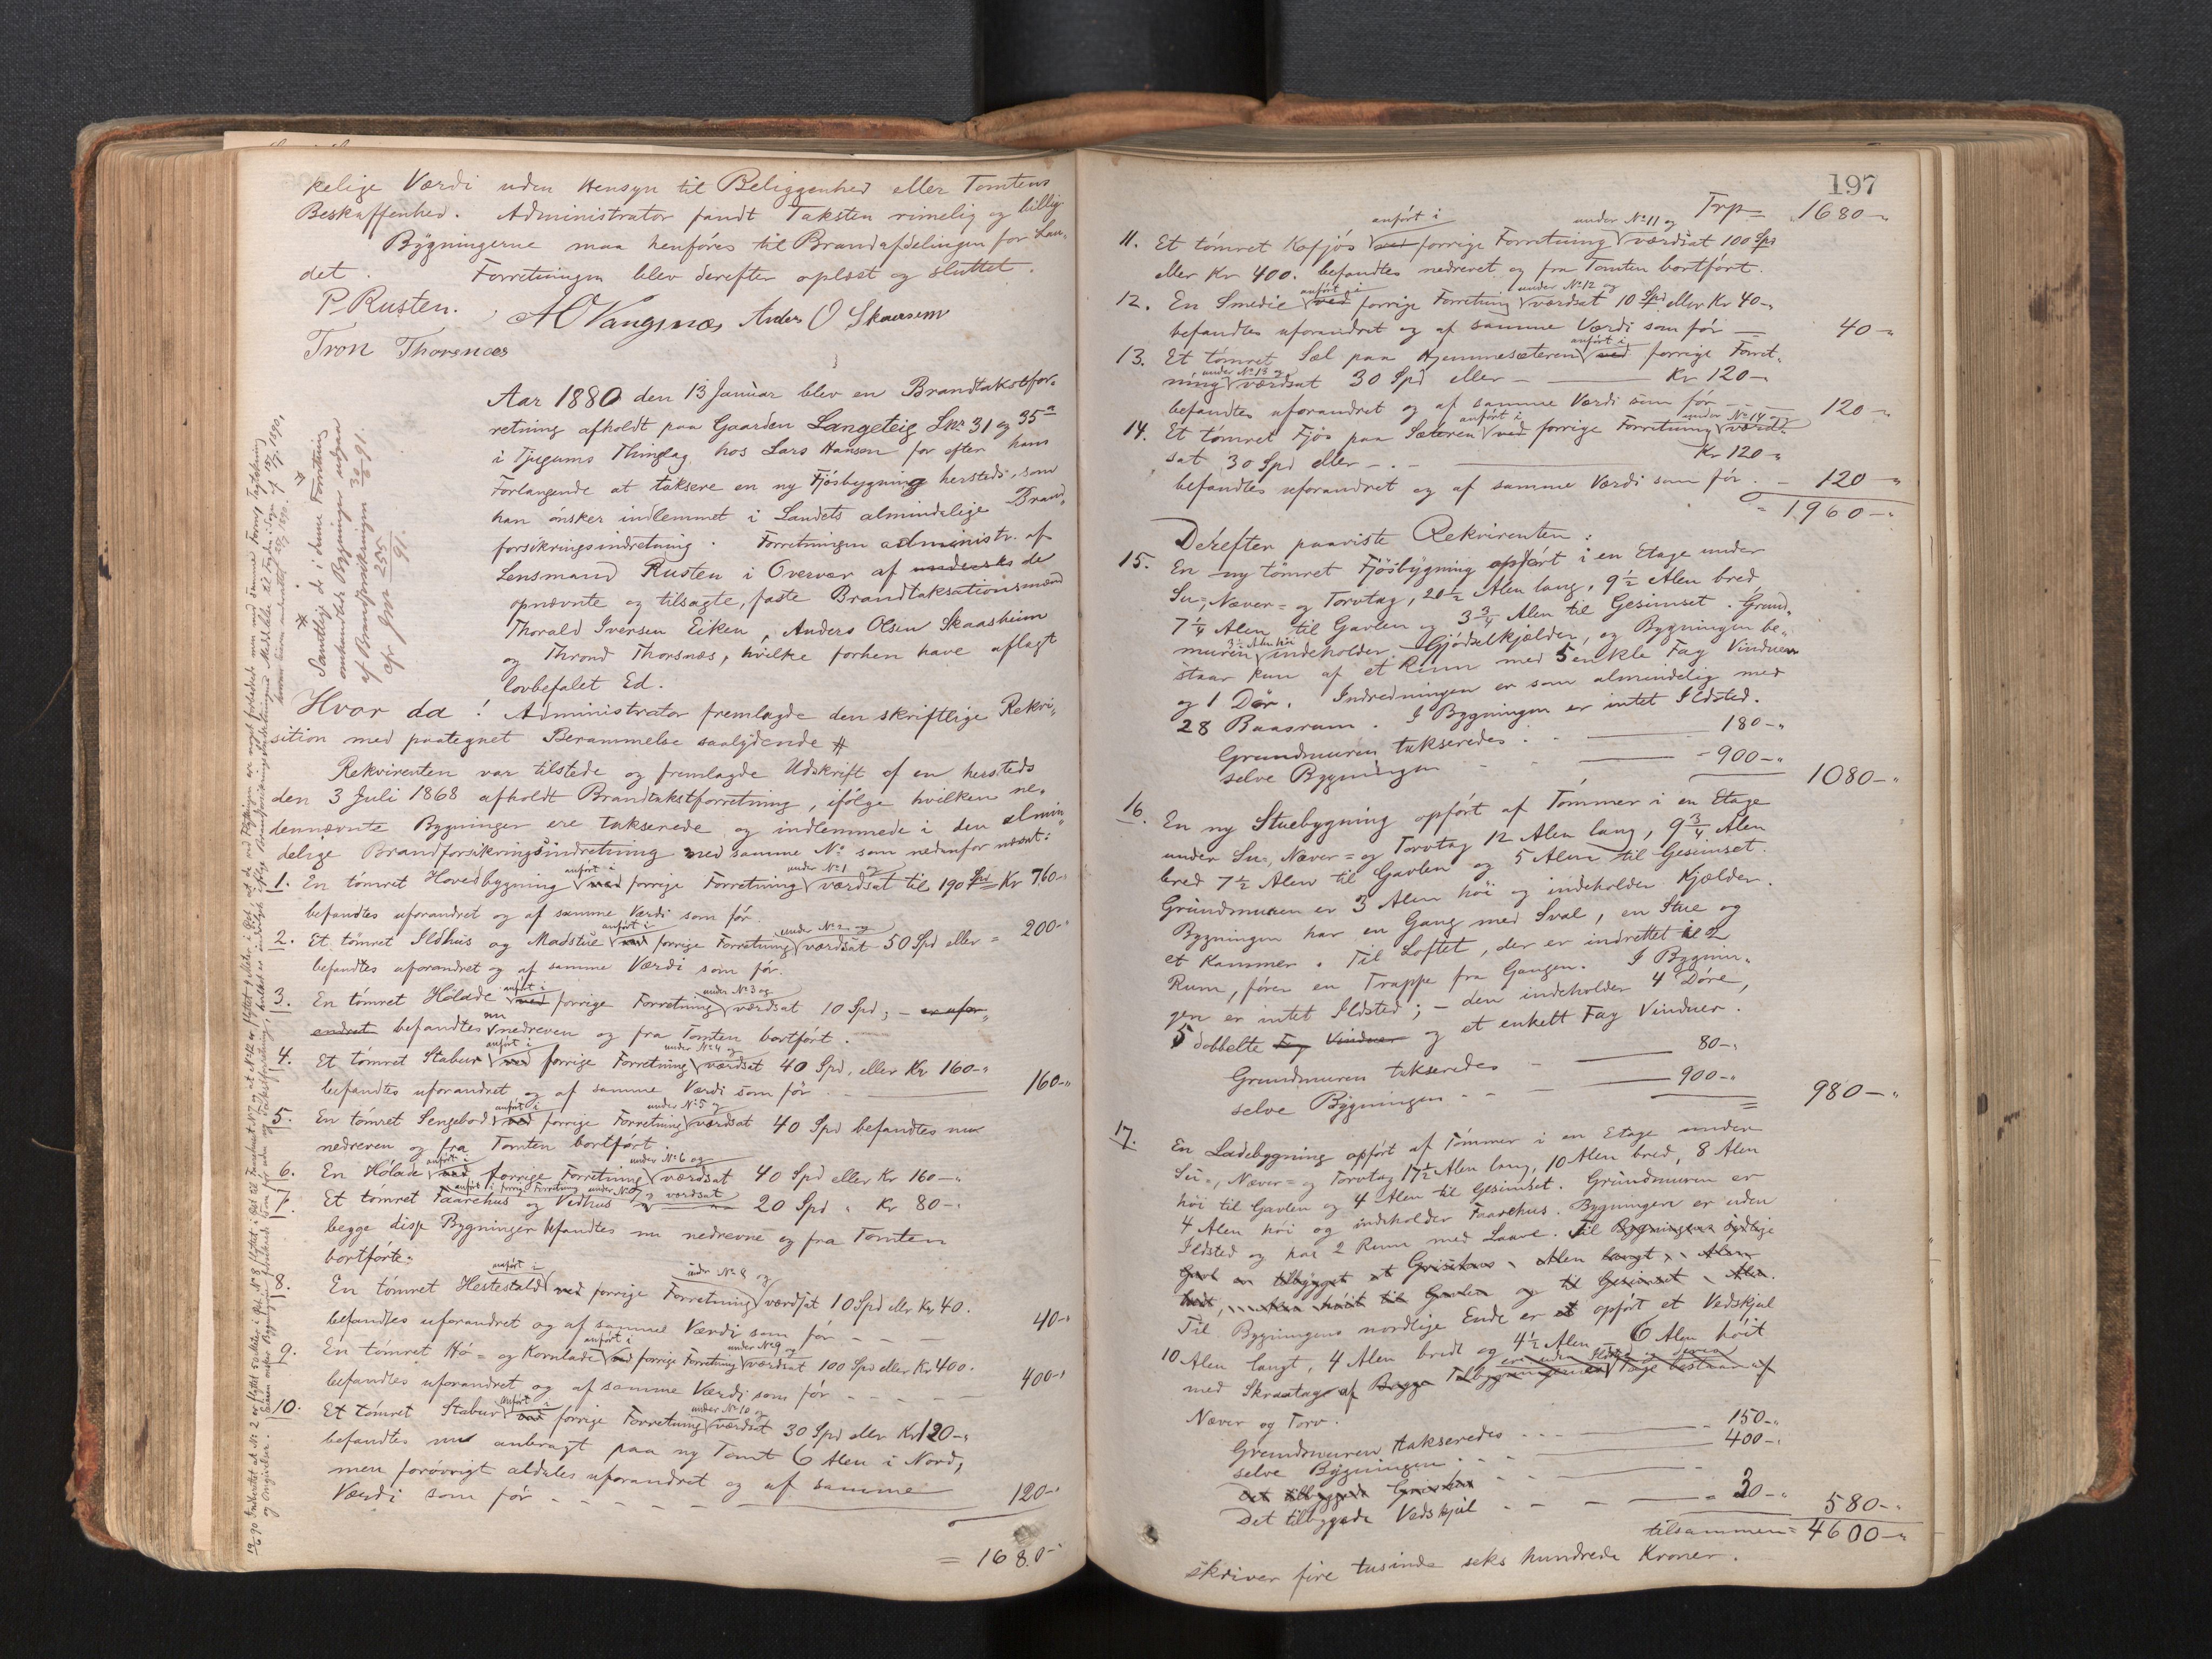 kelige Værdi uden Hensyn til Beliggenhed eller Tomtens
Beskaffenhed. Administrator fandt Taksten rimelig og billig
Bygningerne maa henføres til Brandafdelingen for Lan-
det. Forretningen blev derefter oplæst og sluttet.
P. Rusten. AO Vangsnæs Anders O Skaasem
Tron Thorsnæs
Aar 1880 den 13 Januar blev en Brandtakstfor-
retning afholdt paa Gaarden Langeteig Lnr 31 og 35a
i Tjugums Thinglag hos Lars Hansen for efter hans
Forlangende at taksere en ny Fjøsbygning hersteds, som
han ønsker indlemmet i Landets almindelige Brand-
forsikringsindretning. Forretningen administr. af
Lensmand Rusten i Overvær af de
opnævnte og tilsagte, faste Brandtaksationsmænd
Thorald Iversen Eiken, Anders Olsen Skaasheim
og Thrond Thorsnæs, hvilke forhen have aflagt
lovbefalet Ed.
Samtlige de i denne Forretning
omhandlede Bygninger udgaar
af Brandforsikringen 30/10 91.
cfr Jnr 255/91.
Hvor da! Administrator fremlagde den skriftlige Rekvi-
sition med paategnet Berammelse saalydende #
Rekvirenten var tilstede og fremlagde Udskrift af en hersteds
den 3 Juli 1868 afholdt Brandtakstforretning, ifølge hvilken ne-
dennævnte Bygninger ere takserede og indlemmede i den almin-
delige Brandforsikringsindretning med samme No som nedenfor nævnt:
1. En tømret Hovedbygning anført i ved forrige Forretning under No 1 og værdsat til 190 Spd = Kr 760-"
befandtes uforandret og af samme Værdi som før.
2. Et tømret Ildhus og Madstue anført i ved forrige Forretning under No 2 og værdsat 50 Spd eller = 200-"
befandtes uforandret og af samme Værdi som før.
3. En tømret Hølade anført i ved forrige Forretning under No 3 og værdsat 10 Spd; - er ufor-
andret befandtes nu nedreven og fra Tomten bortført.
4. Et tømret Stabur anført i ved forrige Forretning under No 4 og værdsat 40 Spd. eller Kr 160-"
befandtes uforandret og af samme Værdi som før 160-"
5. En tømret Sengebod anført i ved forrige Forretning under No 5 og værdsat 40 Spd befandtes nu
nedreven og fra Tomten bortført.
6. En Hølade anført i ved forrige Forretning under No 6 og værdsat 40 Spd eller Kr 160-"
7. Et tømret Faarehus og Vedhus anført i forrige Forretning under No 7 og værdsat 20 Spd " Kr 80-"
begge disse Bygninger befandtes nu nedrevne og fra Tomten
bortførte.
8. En tømret Hestestald anført i ved forrige Forretning under No 8 og værdsat 10 Spd eller Kr. 40.
befandtes uforandret og af samme Værdi som før - - - 40-"
9. En tømret Hø- og Kornlade anført i ved forrige Forretning under No 9 og værdsat 100 Spd eller Kr 400.
befandtes uforandret og af samme Værdi som før - - - 400-"
10. Et tømret Stabur anført i ved forrige Forretning under No 10 og værdsat 30 Spd eller Kr 120-"
befandtes nu anbragt paa ny Tomt 6 Alen i Nord,
men forøvrigt aldeles uforandret og af samme
Værdi som før - - - - - 120-"
= 1680-"
197
Trp = 1680-"
11. Et tømret Kofjøs anført i ved forrige Forretning under No 11 og værdsat 100 Spd
eller Kr 400. befandtes nedrevet og fra Tomten bortført.
12. En Smedie anført i ved forrige Forretning under No 12 og værdsat 10 Spd eller Kr 40-"
befandtes uforandret og af samme Værdi som før — 40-"
13. Et tømret Sæl paa Hjemmesæteren anført i ved forrige Forret-
ning under No 13 og værdsat 30 Spd eller - — Kr 120-"
befandtes uforandret og af samme Værdi som før - - 120-"
14. Et tømret Fjøs paa Sæteren anført i ved forrige Forretning under No 14 og værd-
sat 30 Spd eller - . - — Kr 120-"
befandtes uforandret og af samme Værdi som før. - 120-"
= 1960-"
Derefter paaviste Rekvirenten:
15. En ny tømret Fjøsbygning opført i en Etage under
Su-, Næver- og Torvtag, 20½ Alen lang, 9½ Alen bred
7¼ Alen til Gavlen og 3¾ Alen til Gesimset. Grund-
muren 3½ Alen høi indeholder Gjødselkjælder, og Bygningen be-
staar kun af et Rum med 5 enkle Fag Vinduer
og 1 Dør. Indredningen er som almindelig med
28 Baasrum. I Bygningen er intet Ildsted.
Grundmuren takseredes . - — 180-"
selve Bygningen - - — - 900-" 1080-"
16. En ny Stuebygning opført af Tømmer i en Etage
under Su-, Næver- og Torvtag 12 Alen lang, 9¾ Alen
bred 7½ Alen til Gavlen og 5 Alen til Gesimset.
Grundmuren er 3 Alen høi og indeholder Kjælder.
Bygningen har en Gang med Sval, en Stue og
et Kammer. Til Loftet, der er indrettet til 2
Rum, fører en Trappe fra Gangen. I Bygnin-
gen er intet Ildsted; - den indeholder 4 Døre,
5 dobbelte Fag Vinduer og et enkelt Fag Vinduer.
Grundmuren takseredes - — 80-"
selve Bygningen - - - — 900-" = 980-"
17. En Ladebygning opført af Tømmer i en Etage under
Su-, Næver- og Torvtag 17½ Alen lang, 10 Alen bred, 8 Alen
høi til Gavlen og 4 Alen til Gesimset. Grundmuren er
4 Alen høi og indeholder Faarehus. Bygningen er uden
Ildsted og har 2 Rum med Laave. Til Bygningens sydlige
Gavl er tilbygget et Grisehus " Alen langt, " Alen
bredt, " Alen høit til Gavlen og til Gesimset " Alen.
Til Bygningens nordlige Ende er opført et Vedskjul
10 Alen langt, 4 Alen bredt og 4½ Alen - 6 Alen høit
med Skraatag af Begge Tilbygningerne ere uden Ildsted og deres Tage bestaar af
Næver og Torv.
Grundmuren takseredes . . - — - 150-"
selve Bygningen . - - — 400-"
Det tilbyggede Grisehus - - — -
Det tilbyggede Vedskjul - - - — = 30-" 580-"
tilsammen = 4600-"
skriver fire tusinde seks hundrede Kroner.